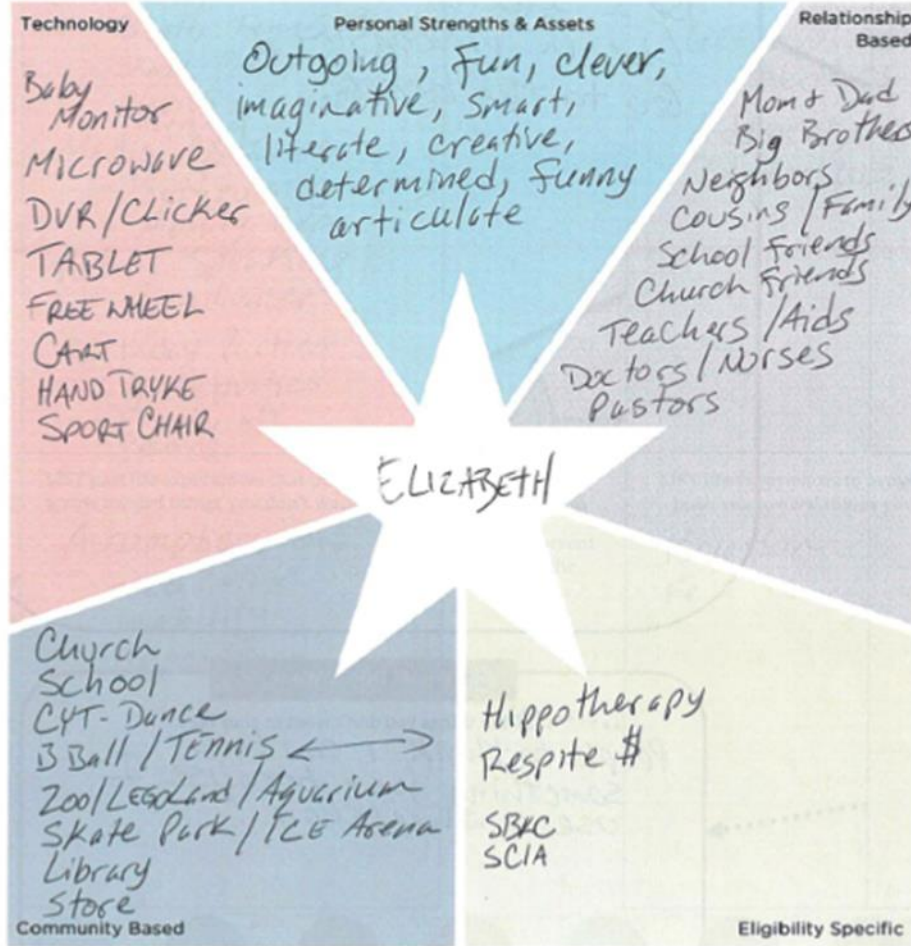 Technology
Baby
Monitor
Microwave
DVR/Clicker
TABLET
FREE WHEEL
CART
HAND TRYKE
SPORT CHAIR
Personal Strengths & Assets
Outgoing, Fun, clever,
imaginative, Smart,
literate, creative,
determined, funny
articulate
Relationship
Based
Mom & Dad
Big Brothers
Neighbors
Cousins / Family
School Friends
Church Friends
Teachers / Aids
Doctors / Nurses
Pastors
ELIZABETH
Church
School
CYT-Dance
B Ball / TENNIS
Zoo / LEGOLand / Aquarium
Skate Park / ICE Arena
Library
Store
Community Based
Hippotherapy
Respite $
SBKC
SCIA
Eligibility Specific